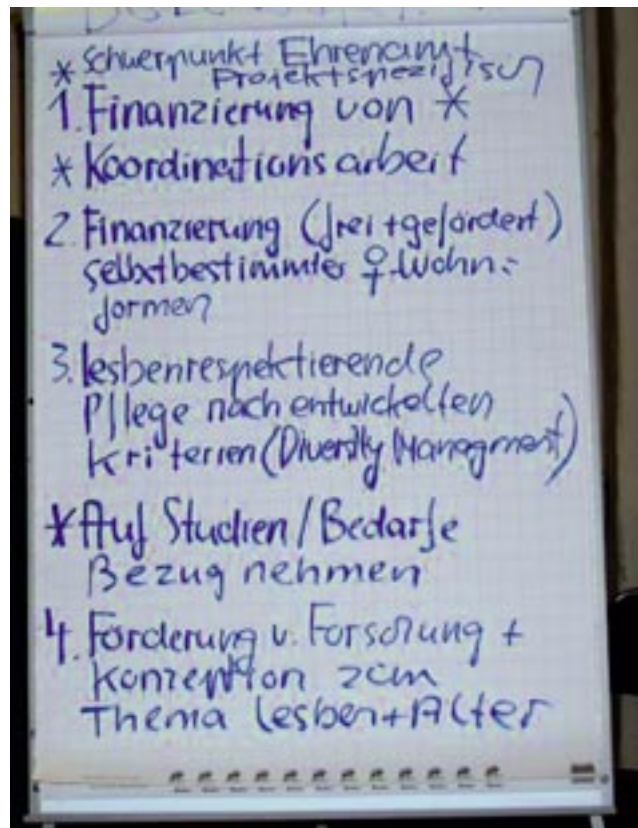 * Schwerpunkt Ehrenamt
Projektspezifisch
1. Finanzierung von *
* Koordinationsarbeit
2. Finanzierung (frei + gefördert)
selbstbestimmter ♀-Wohn-
formen
3. lesbenrespektierende
Pflege nach entwickelten
Kriterien (Diversity Managment)
* Auf Studien / Bedarfe
Bezug nehmen
4. Förderung v. Forschung +
Konzeption zum
Thema Lesben + Alter